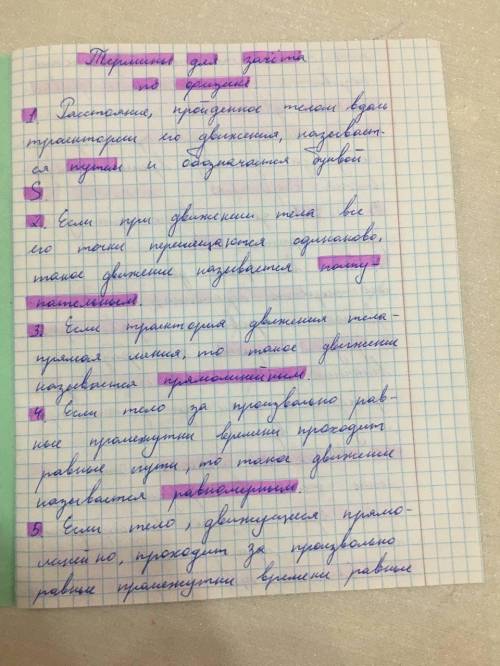 Термины для зачёта
по физике
1. Расстояние, пройденное телом вдоль
траектории его движения, называет-
ся путём и обозначается буквой
S.
2. Если при движении тела все
его точки перемещаются одинаково,
такое движение называется
3. Если траектория движения тела-
прямая линия, то такое движение
называется прямолинейным.
4. Если тело за произвольно рав-
ные промежутки времени проходит
равные пути, то такое движение
называется равномерным.
5. Если тело, движущееся прямо-
линейно, проходит за произвольно
равные промежутки времени равные